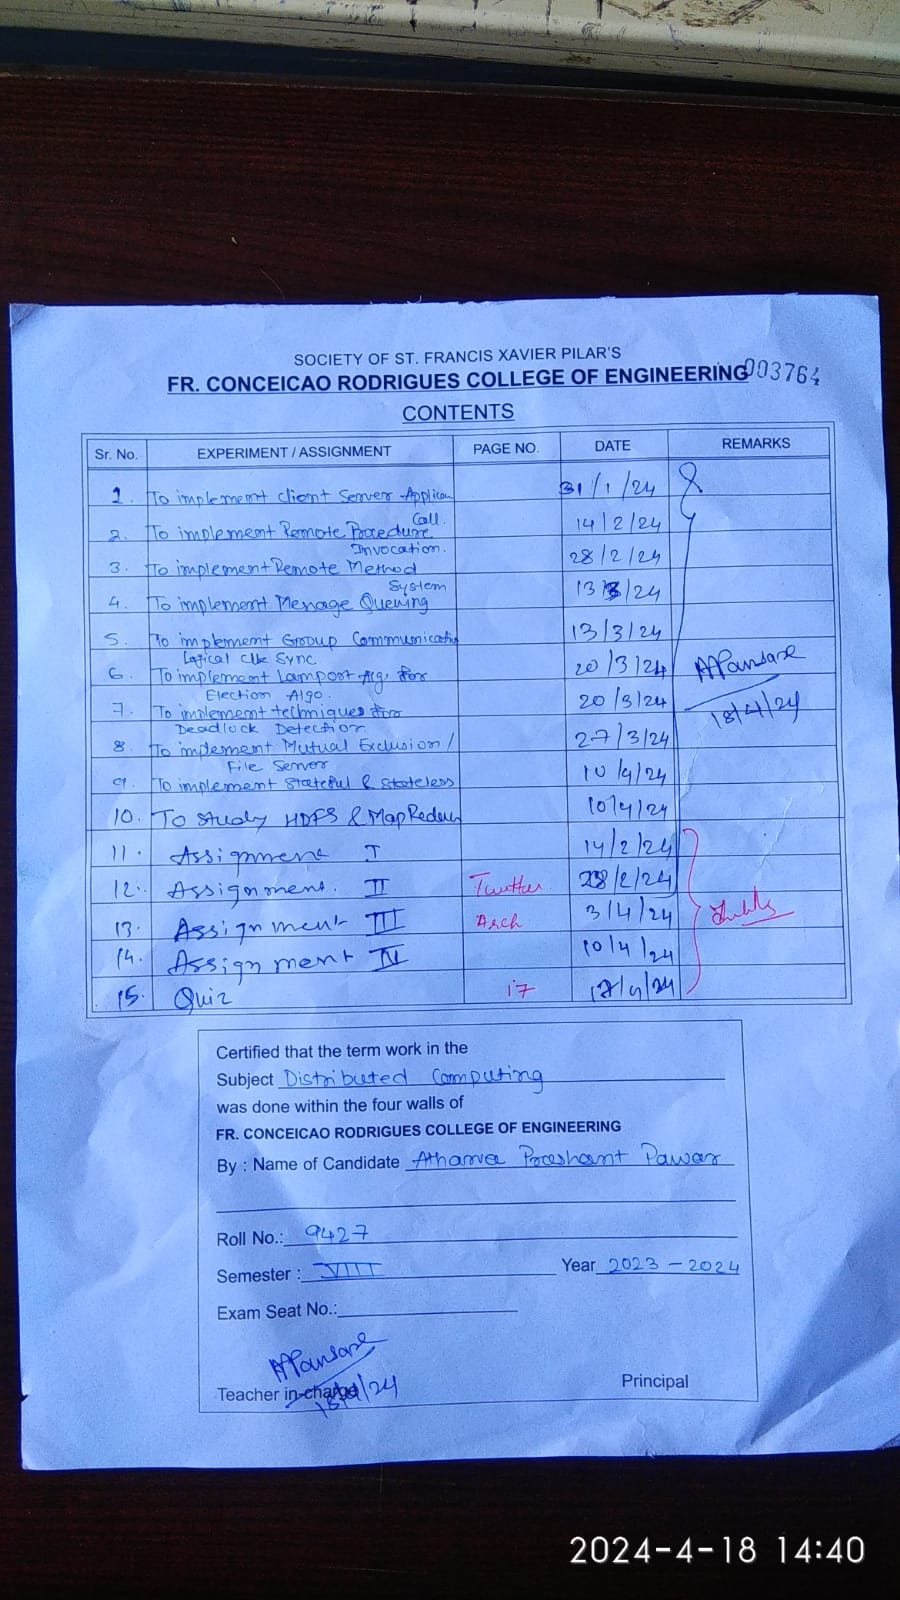 SOCIETY OF ST. FRANCIS XAVIER PILAR'S
FR. CONCEICAO RODRIGUES COLLEGE OF ENGINEERING 003764
CONTENTS
Sr. No. EXPERIMENT / ASSIGNMENT PAGE NO. DATE REMARKS
1. To implement Client Server Applicn 31/1/24
Call.
2. To implement Remote Procedure 14/2/24
Invocation.
3. To implement Remote Method 28/2/24
System
4. To implement Message Queuing 13/3/24
5. To implement Group Communicatin 13/3/24
Logical Clk Sync
6. To implement Lamport Alg. for 20/3/24
Election Algo.
7. To implement techniques for 20/3/24
18/4/24
Deadlock Detection
8. To implement Mutual Exclusion / 27/3/24
File Server
9. To implement Stateful & Stateless 10/4/24
10. To study HDFS & MapReduce 10/4/24
11. Assignment I 14/2/24
12. Assignment. II Twitter 28/2/24
13. Assignment III Arch 3/4/24
14. Assignment IV 10/4/24
15. Quiz 17 17/4/24
Certified that the term work in the
Subject Distributed Computing
was done within the four walls of
FR. CONCEICAO RODRIGUES COLLEGE OF ENGINEERING
By : Name of Candidate Atharva Prashant Pawar
Roll No.: 9427
Semester : VIII Year 2023 - 2024
Exam Seat No.:
Teacher in-charge 18/4/24 Principal
2024-4-18 14:40